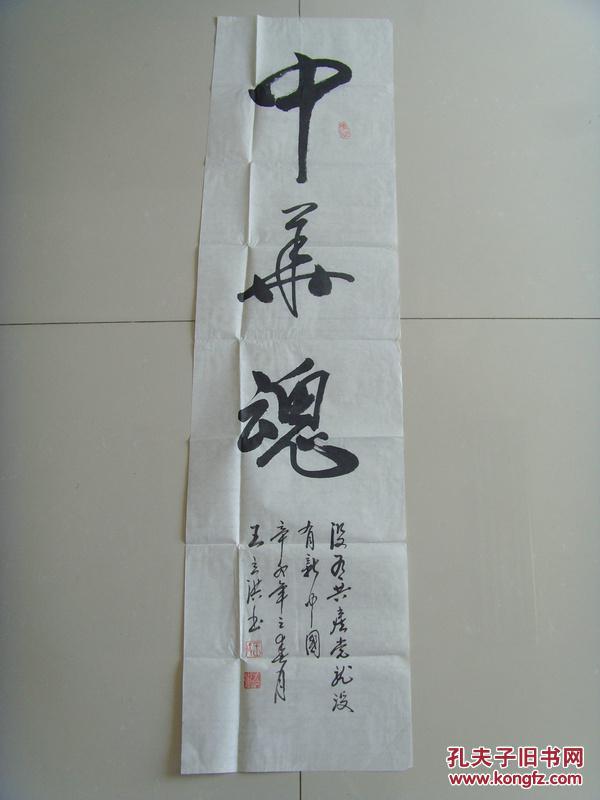 中華魂
没有共產党就没
有新中國
辛卯年之春月
王立洪书
孔夫子旧书网
www.kongfz.com